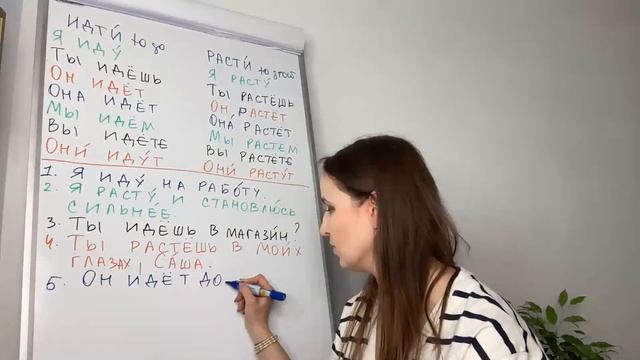 ИДТИ́ to go
Я ИДУ́
ТЫ ИДЁШЬ
ОН ИДЁТ
ОНА ИДЁТ
МЫ ИДЁМ
ВЫ ИДЁТЕ
ОНИ́ ИДУ́Т
РАСТИ́ to grow
Я РАСТУ́
ТЫ РАСТЁШЬ
ОН РАСТЁТ
ОНА́ РАСТЁТ
МЫ РАСТЁМ
ВЫ РАСТЁТЕ
ОНИ́ РАСТУ́Т
1. Я ИДУ́ НА РАБО́ТУ.
2. Я РАСТУ́ И СТАНОВЛЮ́СЬ
СИЛЬНЕ́Е.
3. ТЫ ИДЁШЬ В МАГАЗИ́Н?
4. ТЫ РАСТЁШЬ В МОИ́Х
ГЛАЗАХ, СА́ША.
5. ОН ИДЁТ ДО